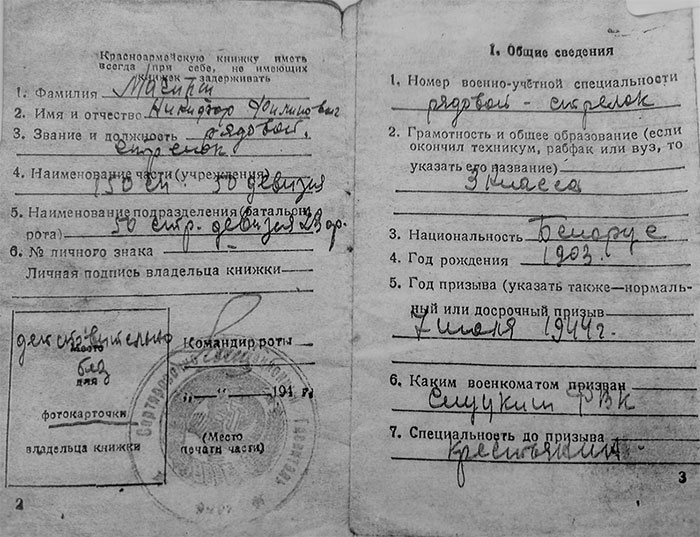 Красноармейскую книжку иметь
всегда при себе, не имеющих
книжек задерживать
1. Фамилия
2. Имя и отчество Никифор Филипович
3. Звание и должность рядовой
стрелок
4. Наименование части (учреждения)
150 сп. 50 девизия
5. Наименование подразделения (батальон,
рота) 50 стр. девизия
6. № личного знака
Личная подпись владельца книжки
действительно
Место
без
для
фотокарточки
владельца книжки
Командир роты
„ “ 194 г.
(Место
печати части)
2
1. Общие сведения
1. Номер военно-учётной специальности
рядовой - стрелок
2. Грамотность и общее образование (если
окончил техникум, рабфак или вуз, то
указать его название)
3 класса
3. Национальность Белорус
4. Год рождения 1903.
5. Год призыва (указать также—нормаль-
ный или досрочный призыв
7 июля 1944 г.
6. Каким военкоматом призван
Слуцким РВК
7. Специальность до призыва
крестьянин
3